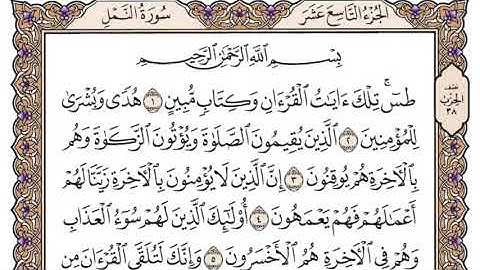 سُورَةُ النَّمْلِ
الجُزْءُ التَّاسِعَ عَشَرَ
بِسْمِ ٱللَّهِ ٱلرَّحْمَٰنِ ٱلرَّحِيمِ
طسٓ ۚ تِلْكَ ءَايَٰتُ ٱلْقُرْءَانِ وَكِتَابٍ مُّبِينٍ ١ هُدًى وَبُشْرَىٰ
لِلْمُؤْمِنِينَ ٢ ٱلَّذِينَ يُقِيمُونَ ٱلصَّلَوٰةَ وَيُؤْتُونَ ٱلزَّكَوٰةَ وَهُم
بِٱلْءَاخِرَةِ هُمْ يُوقِنُونَ ٣ إِنَّ ٱلَّذِينَ لَا يُؤْمِنُونَ بِٱلْءَاخِرَةِ زَيَّنَّا لَهُمْ
أَعْمَٰلَهُمْ فَهُمْ يَعْمَهُونَ ٤ أُو۟لَٰٓئِكَ ٱلَّذِينَ لَهُمْ سُوٓءُ ٱلْعَذَابِ
وَهُمْ فِى ٱلْءَاخِرَةِ هُمُ ٱلْأَخْسَرُونَ ٥ وَإِنَّكَ لَتُلَقَّى ٱلْقُرْءَانَ مِن
نصف
الحزب
٣٨